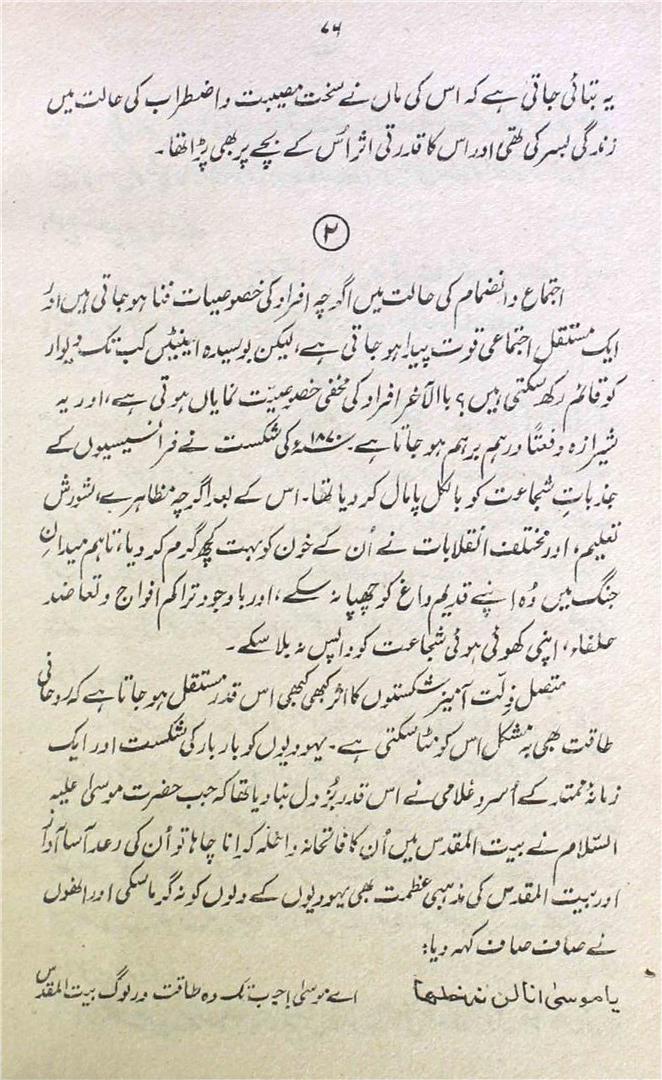 ۷۶
یہ بتائی جاتی ہے کہ اس کی ماں نے سخت مصیبت و اضطراب کی حالت میں
زندگی بسر کی تھی اور اس کا قدرتی اثر اُس کے بچے پر بھی پڑا تھا۔
۲
اجتماع و انضمام کی حالت میں اگرچہ افراد کی خصوصیات فنا ہو جاتی ہیں اور
ایک مستقل اجتماعی قوت پیدا ہو جاتی ہے، لیکن بوسیدہ اینٹیں کب تک دیوار
کو قائم رکھ سکتی ہیں؟ بالآخر افراد کی مخفی خصوصیّت نمایاں ہوتی ہے، اور یہ
شیرازہ دفعتًا درہم برہم ہو جاتا ہے۔ ۱۸۷۰ء کی شکست نے فرانسیسیوں کے
جذباتِ شجاعت کو بالکل پامال کر دیا تھا۔ اس کے بعد اگرچہ مظاہرے، شورش
تعلیم، اور مختلف انقلابات نے اُن کے خون کو بہت کچھ گرم کر دیا، تاہم میدانِ
جنگ میں وُہ اپنے قدیم داغ کو چھپا نہ سکے، اور باوجود تراکم افواج و تعاضد
حلفاء، اپنی کھوئی ہوئی شجاعت کو واپس نہ بلا سکے۔
متصل ذلّت آمیز شکستوں کا اثر کبھی کبھی اس قدر مستقل ہو جاتا ہے کہ روحانی
طاقت بھی بہ مشکل اس کو مٹا سکتی ہے۔ یہودیوں کو بار بار کی شکست اور ایک
زمانۂ ممتد کے اسر و غلامی نے اس قدر بُزدل بنا دیا تھا کہ جب حضرت موسیٰ علیہ
السّلام نے بیت المقدس میں اُن کا فاتحانہ داخلہ کرانا چاہا تو اُن کی رعد آسا آواز
اور بیت المقدس کی مذہبی عظمت بھی یہودیوں کے دلوں کو نہ گرما سکی اور انھوں
نے صاف صاف کہہ دیا:
یا موسیٰ انا لن ندخلھا اے موسیٰ! جب تک وہ طاقت ور لوگ بیت المقدس